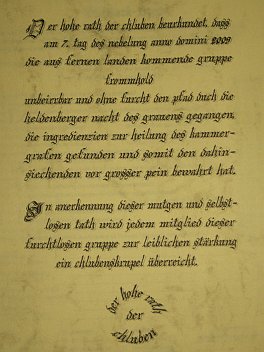 Der hohe rath der chluben beurkundet, dass
am 7. tag des nebelung anno domini 2009
die aus fernen landen kommende gruppe
frommhold
unbeirbar und ohne furcht den pfad duch die
heldenberger nacht des grauens gegangen,
die ingredienzien zur heilung des kammer-
grafen gefunden und somit den dahin-
siechenden vor grosser pein bewahrt hat.
In anerkennung dieser mutgen und selbst-
losen tath wird jedem mitglied dieser
furchtlosen gruppe zur leiblichen stärkung
ein chlubenskrupel überreicht.
der hohe rath
der
chluben